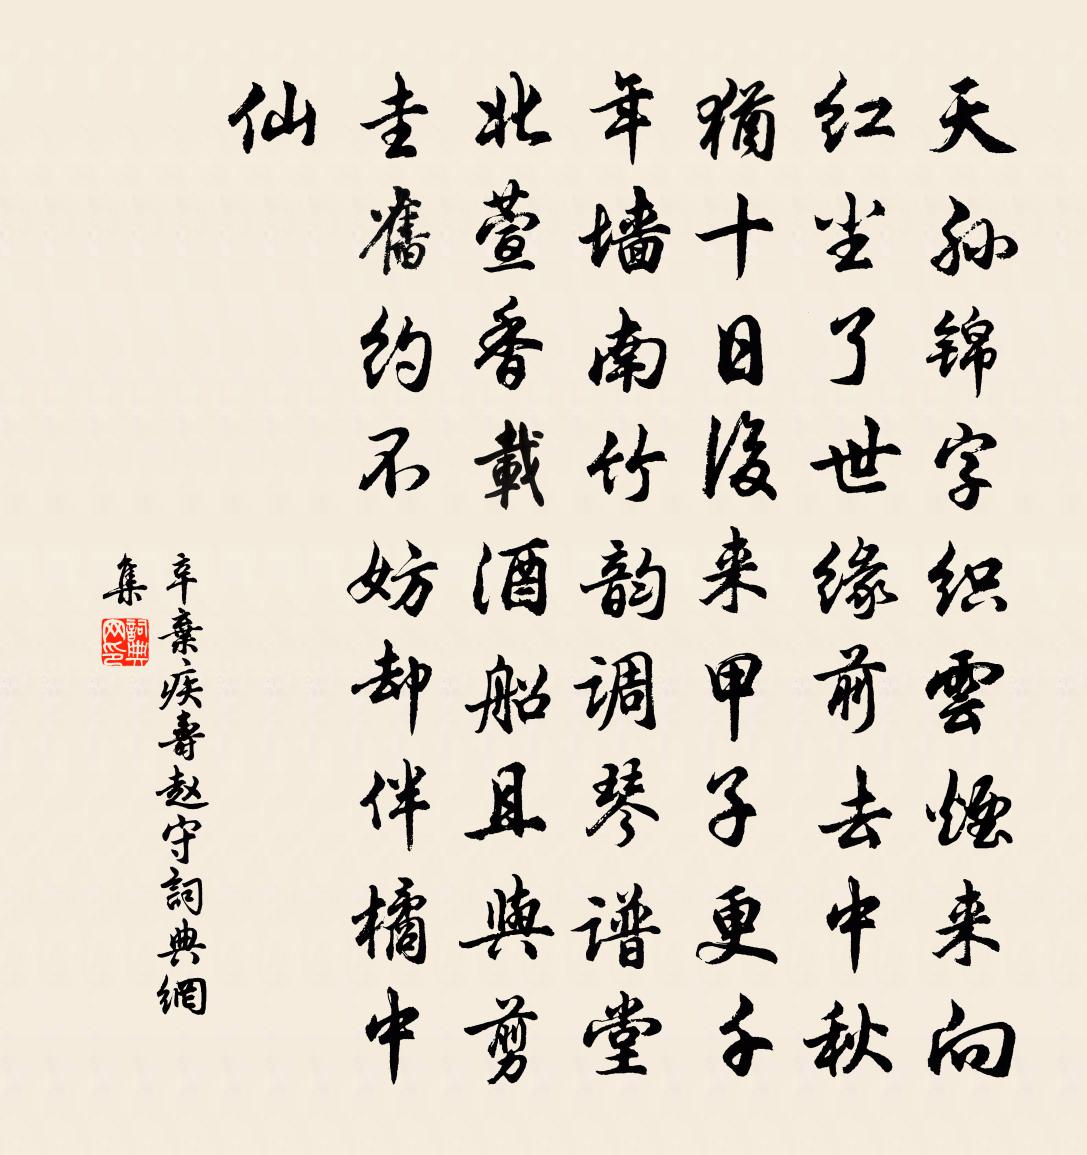 天孙锦字织雲煙来向
红尘了世缘前去中秋
猶十日後来甲子更千
年墙南竹韵调琴谱堂
北萱香載酒船且與剪
圭舊约不妨却伴橘中
仙
辛棄疾壽赵守詞典網
集
詞典网印